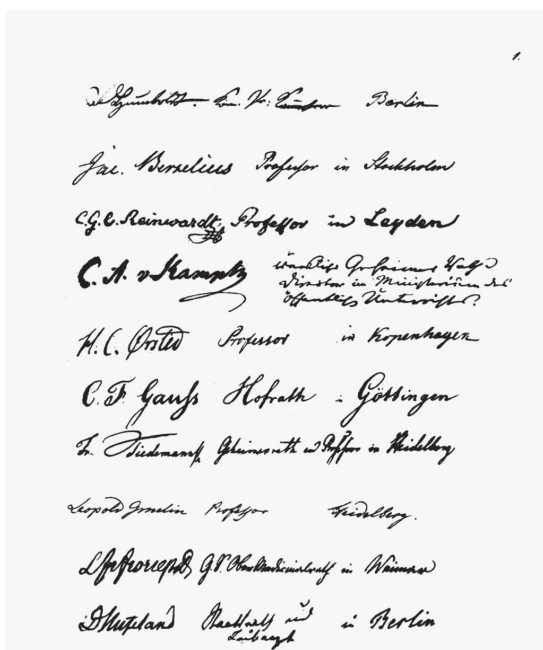 1.
Humboldt. Berlin
Jac. Berzelius Professor in Stockholm
C.G.C. Reinwardt, Professor in Leyden
C. A. v Kamptz wirklicher Geheimer
Director im Ministerium des
öffentlichen Unterrichts.
H. C. Ørsted Professor in Kopenhagen
C. F. Gauſs Hofrath : Göttingen
Fr. Tiedemann, Geheimerath u Professor in Heidelberg
Leopold Gmelin Professor Heidelberg.
Froriep G.S. Obermedicinalrath in Weimar
Hufeland Staatsrath und
Leibarzt in Berlin